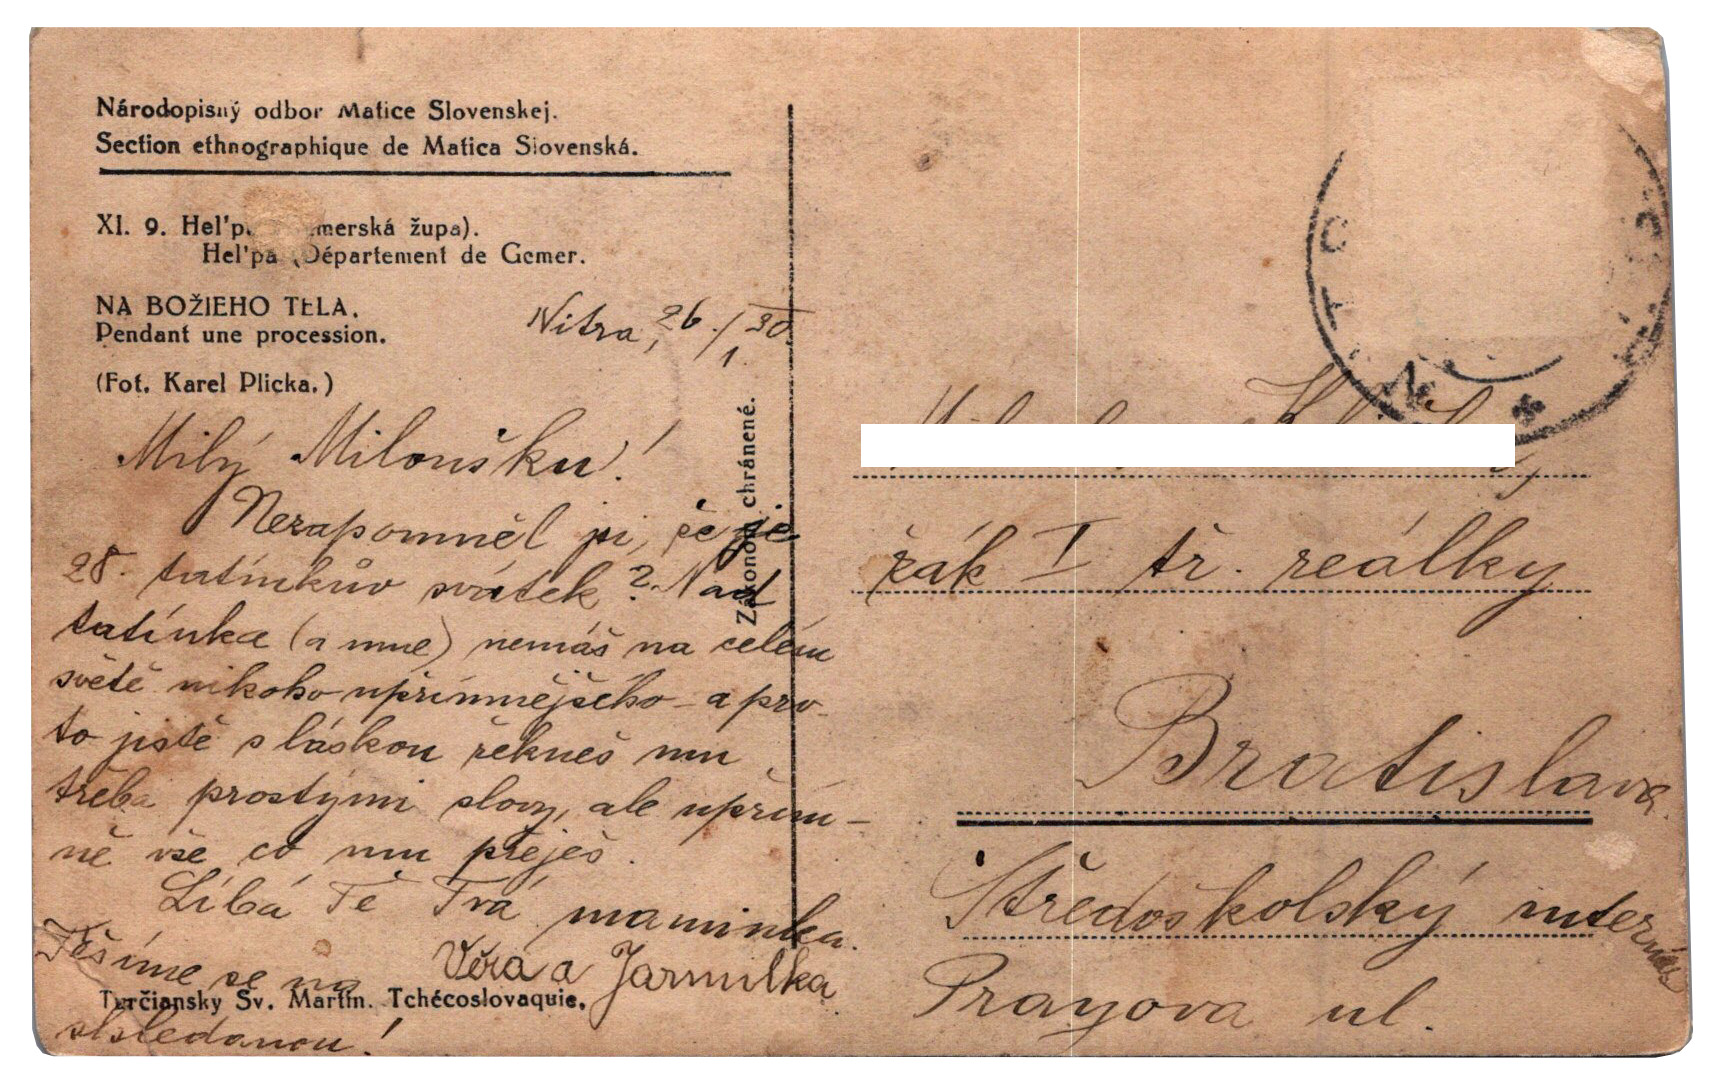 Národopisný odbor Matice Slovenskej.
Section ethnographique de Matica Slovenská.
XI. 9. Hel'p merská župa).
Hel'pa (Département de Gemer.
NA BOŽIEHO TELA.
Pendant une procession.
(Fot. Karel Plicka.)
Nitra, 26./1. 30.
Milý Miloušku!
Nezapomněl jsi, že je
28. tatínkův svátek? Nad
tatínka (a mne) nemáš na celém
světě nikoho upřímnějšího – a pro-
to jistě s láskou řekneš mu
třeba prostými slovy, ale upřím-
ně vše, co mu přeješ.
Líbá Tě Tvá maminka.
Věra a Jarmilka
Těšíme se na
shledanou!
Turčiansky Sv. Martin. Tchécoslovaquie.
Zákonom chránené.
NIT
žák I tř. reálky
Bratislava.
Středoškolský internát
Prayova ul.